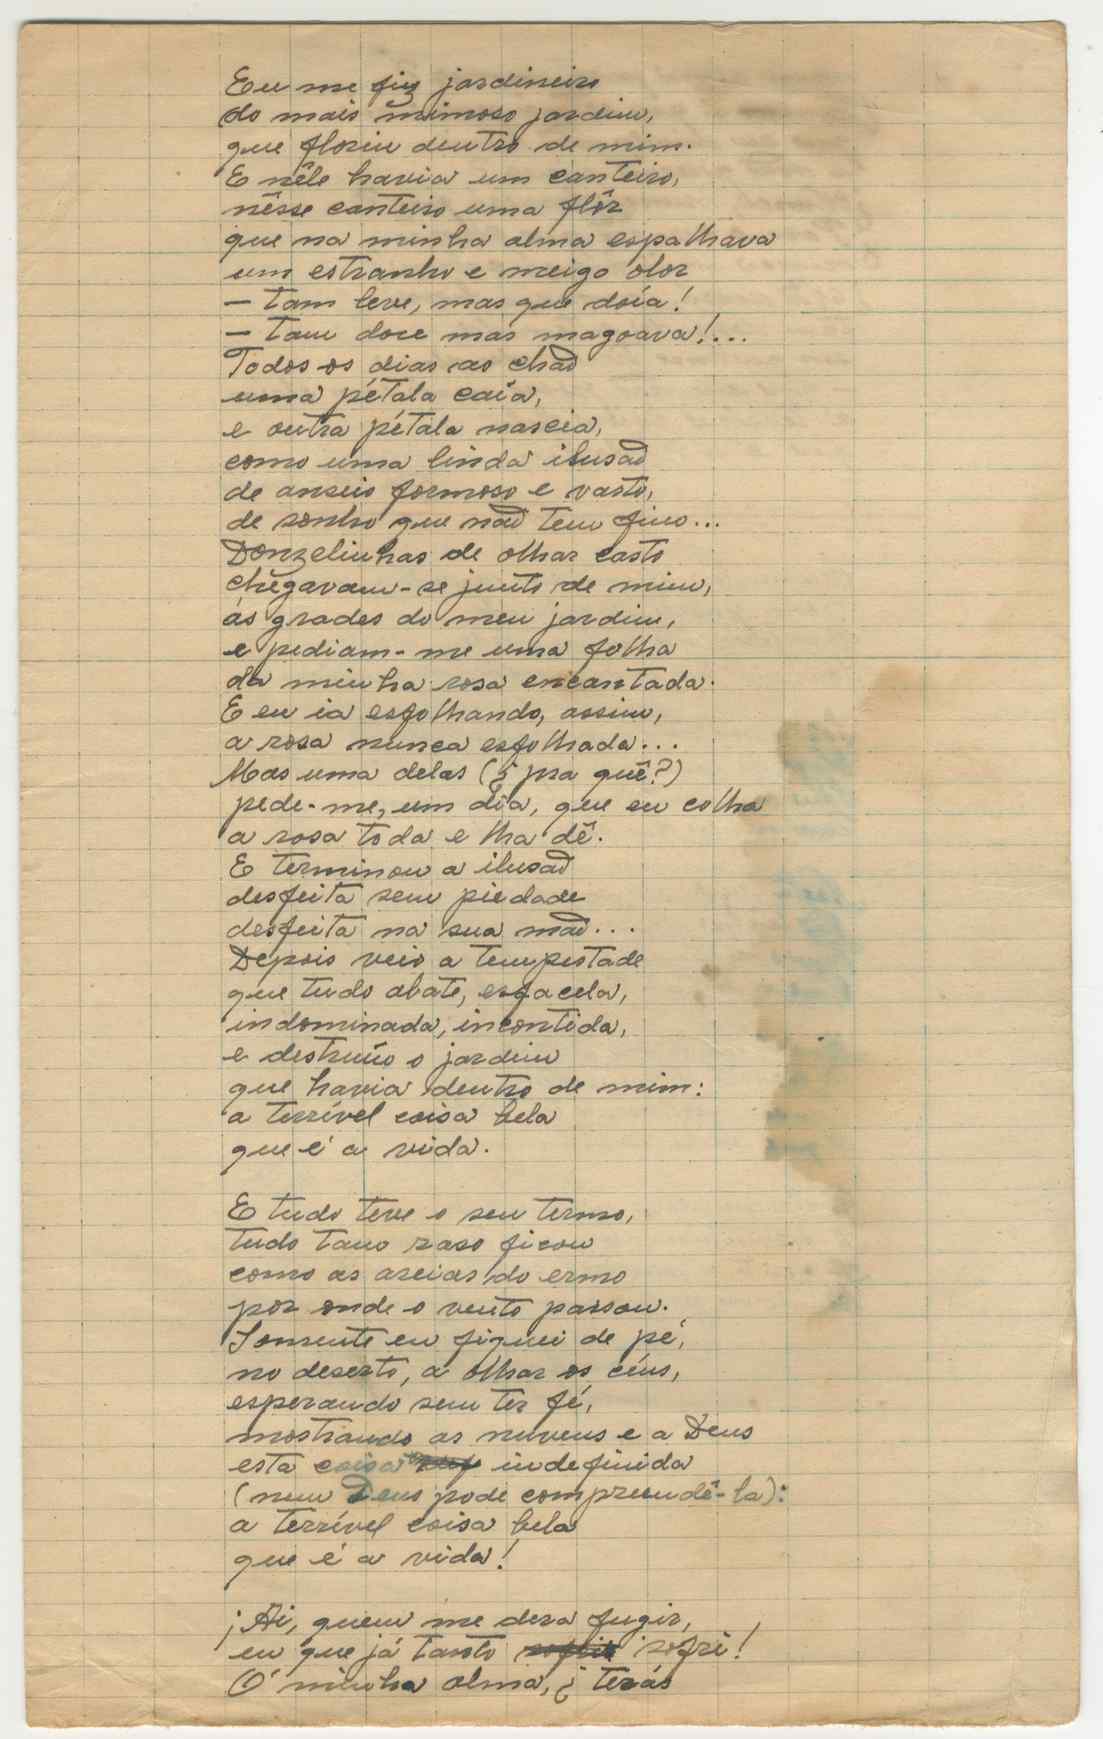 Eu me fiz jardineiro
do mais mimoso jardim,
que floriu dentro de mim.
E nêle havia um canteiro,
nêsse canteiro uma flôr
que na minha alma espalhava
um estranho e meigo olor
— tam leve, mas que doía!
— tam doce mas magoava!...
Todos os dias ao chaõ
uma pétala caía,
e outra pétala nascia,
como uma linda ilusaõ
de anseio formoso e vasto,
de sonho que naõ tem fim...
Donzelinhas de olhar casto
chegavam-se junto de mim,
ás grades do meu jardim,
e pediam-me uma folha
da minha rosa encantada.
E eu ia esfolhando, assim,
a rosa nunca esfolhada...
Mas uma delas (¿ pra quê?)
pede-me, um dia, que eu colha
a rosa toda e lha dê.
E terminou a ilusaõ
desfeita sem piedade
desfeita na sua maõ...
Depois veio a tempestade
que tudo abate, esfacela,
indominada, incontida,
e destruío o jardim
que havia dentro de mim:
a terrível coisa bela
que é a vida.

E tudo teve o seu termo,
tudo tam raso ficou
como as areias do ermo
por onde o vento passou.
Somente eu fiquei de pé,
no deserto, a olhar os céus,
esperando sem ter fé,
mostrando as nuvens e a Deus
esta coisa indefinida
(nem Deus pode compreendê-la):
a terrível coisa bela
que é a vida!

¡Ai, quem me dera fugir,
eu que já tanto sofri!
Ó minha alma, ¿ terás